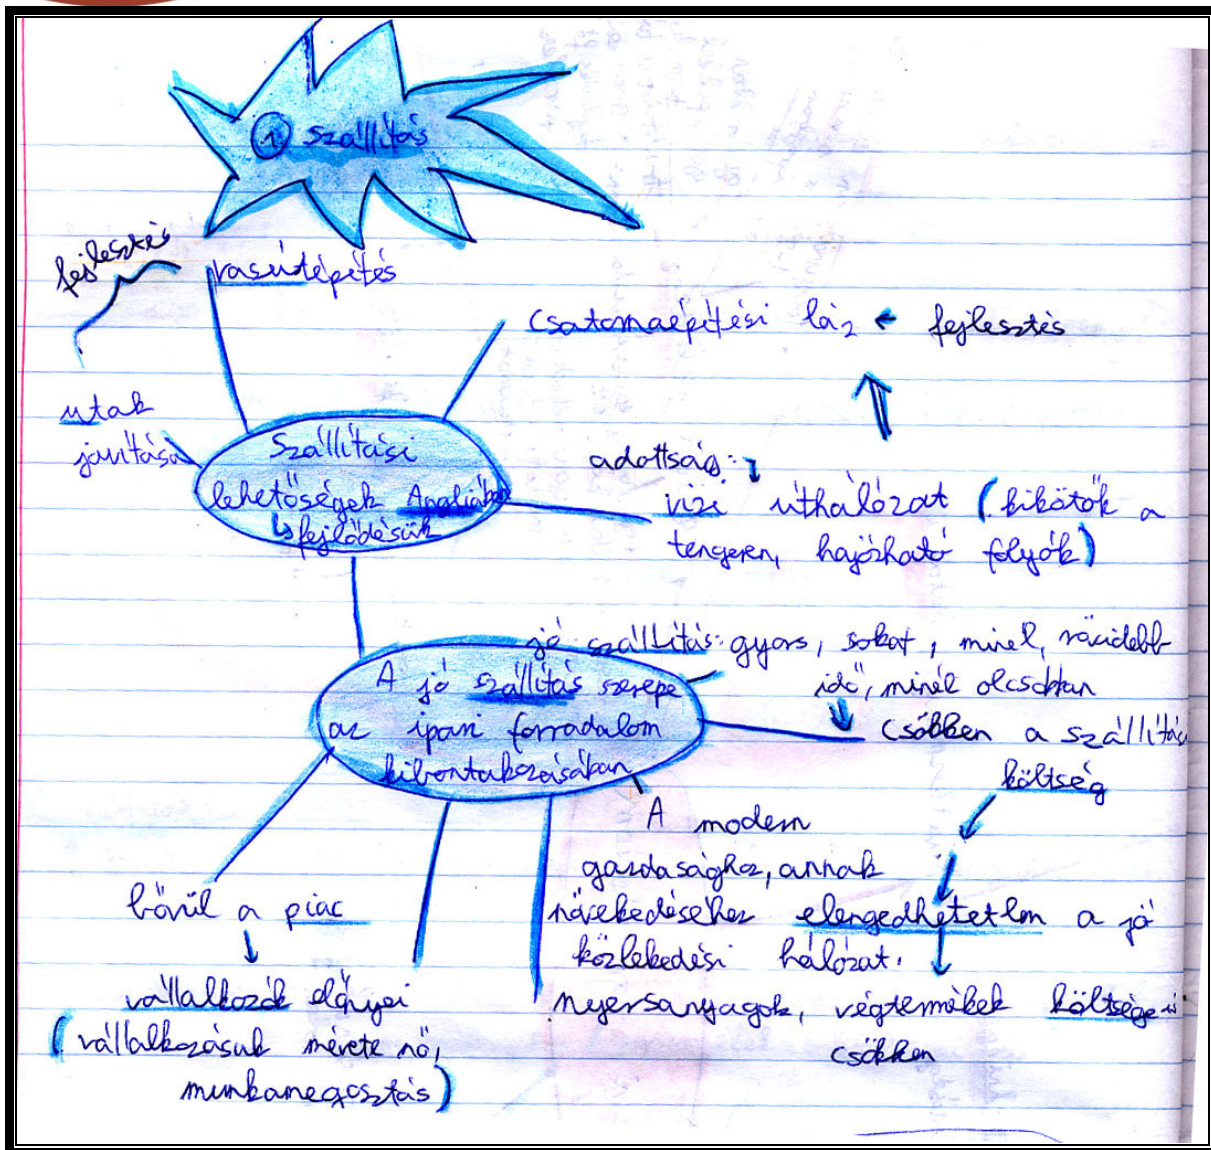 ① Szállítás
fejlesztés
vasútépítés
Csatornaépítési láz ← fejlesztés
utak
javítása
Szállítási
lehetőségek Angliában
↳ fejlődésük
adottság:
vizi úthálózat (kikötők a
tengeren, hajózható folyók)
jó szállítás: gyors, sokat, minél, rövidebb
idő, minél olcsóbban
A jó szállítás szerepe
az ipari forradalom
kibontakozásában
csökken a szállítási
költség
A modern
gazdasághoz, annak
növekedéséhez elengedhetetlen a jó
közlekedési hálózat.
bővül a piac
vállalkozók előnyei
(vállalkozásuk mérete nő,
munkamegosztás)
nyersanyagok, végtermékek költsége is
csökken